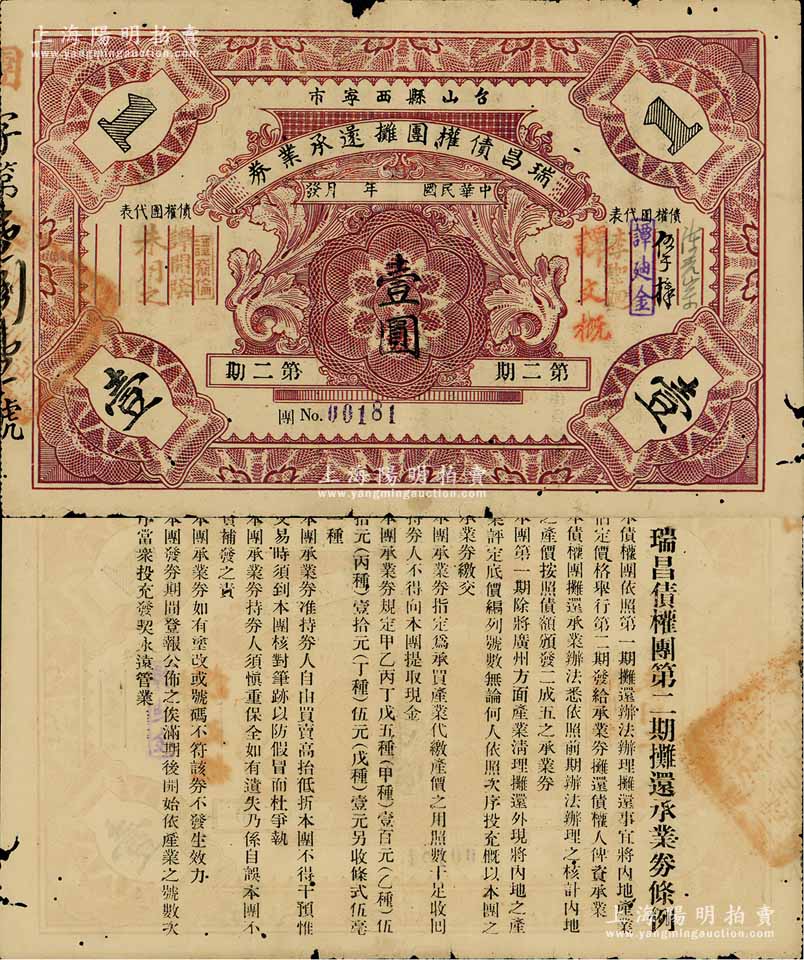 上海陽明拍賣
www.yangmingauction.com
1
1
台山縣西寧市
瑞昌債權團攤還承業券
中華民國　年　月發
債權團代表
譚文概
譚廸金
債權團代表
壹圓
第二期
第二期
團 No. 00181
壹
字第
號
上海陽明拍賣
www.yangmingauction.com
瑞昌債權團第二期攤還承業券條例
本債權團依照第一期攤還辦法辦理攤還事宜將內地產業
估定價格舉行第二期發給承業券攤還債權人俾資承業
本債權團攤還承業辦法悉依照前期辦法辦理之核計內地
之產價按照債額頒發二成五之承業券
本團第一期除將廣州方面產業清理攤還外現將內地之產
業評定底價編列號數無論何人依照次序投充概以本團之
承業券繳交
本團承業券指定為承買產業代繳產價之用照數十足收回
持券人不得向本團提取現金
本團承業券規定甲乙丙丁戊五種(甲種)壹百元(乙種)伍
拾元(丙種)壹拾元(丁種)伍元(戊種)壹元另收條式伍毫
一種
本團承業券准持券人自由買賣高抬低折本團不得干預惟
交易時須到本團核對筆跡以防假冒而杜爭執
本團承業券持券人須慎重保全如有遺失乃係自誤本團不
負補發之責
本團承業券如有塗改或號碼不符該券不發生效力
本團發券期間登報公佈之俟滿期後開始依產業之號數次
序當衆投充發契永遠管業
上海陽明拍賣
www.yangmingauction.com